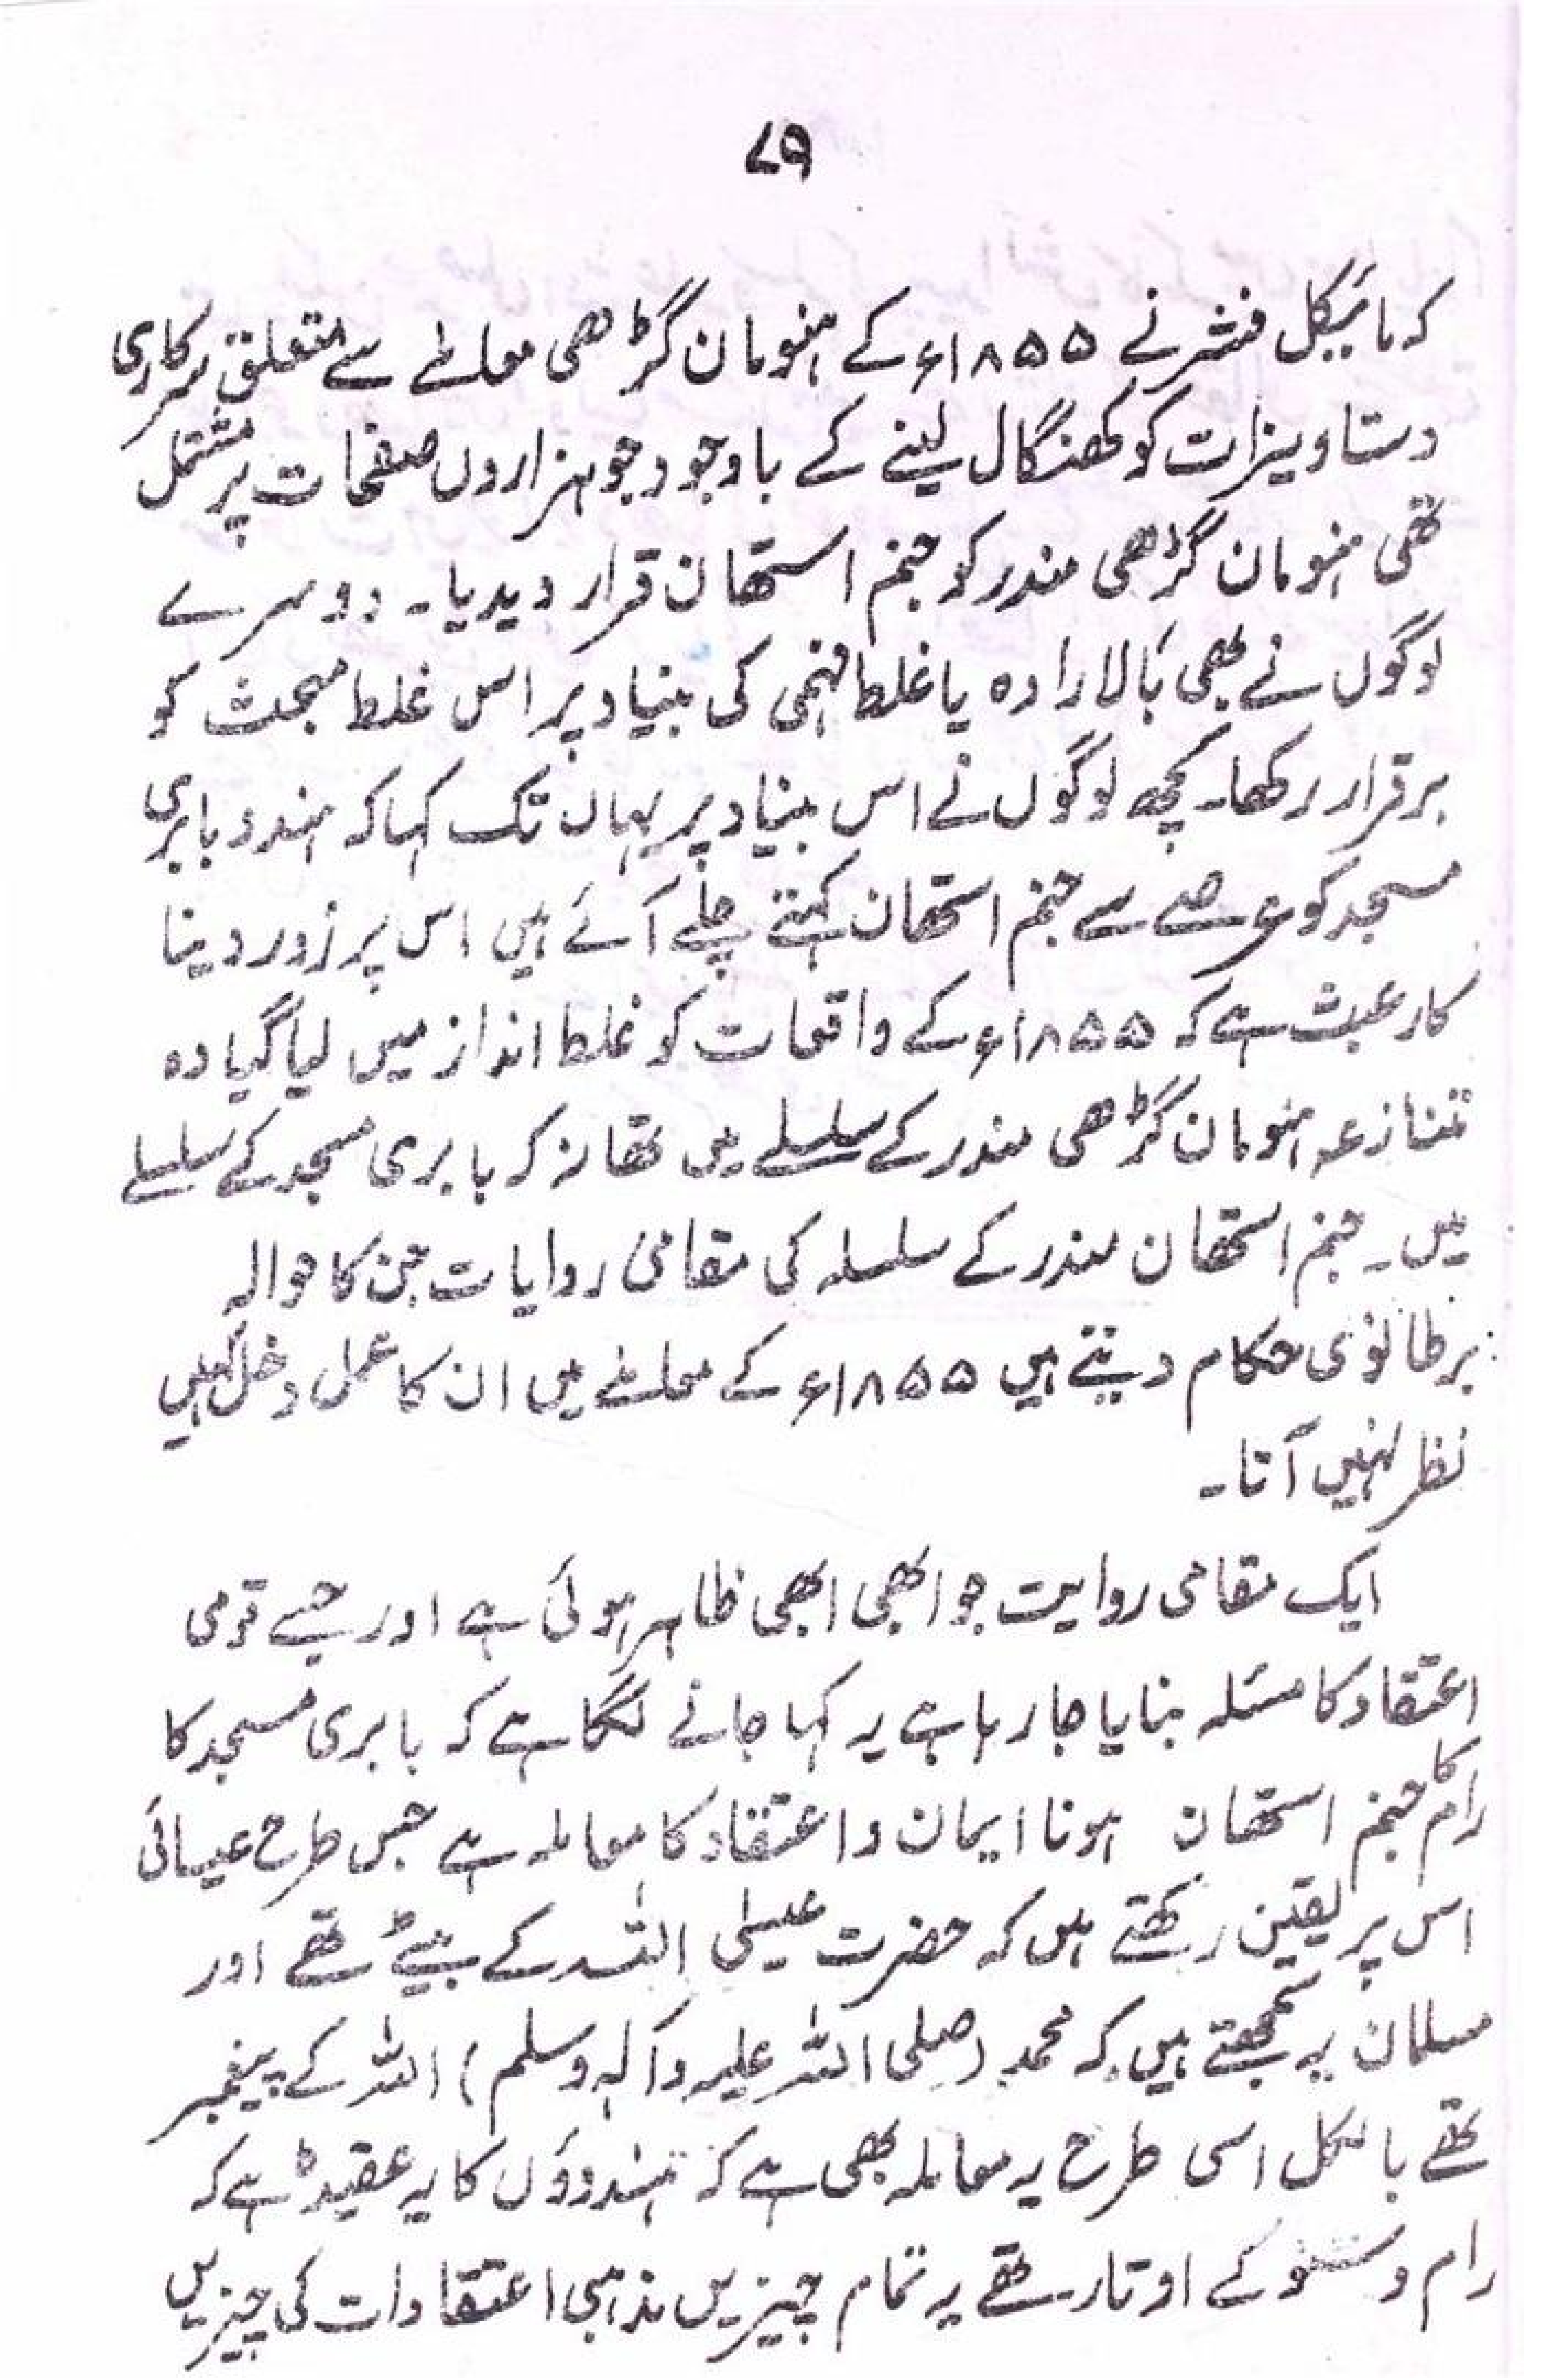 ۷۹
کہ مائیکل فشر نے ۱۸۵۵ء کے ہنومان گڑھی معاملے سے متعلق سرکاری
دستاویزات کو کھنگال لینے کے باوجود جو ہزاروں صفحات پر مشتمل
تھی ہنومان گڑھی مندر کو جنم استھان قرار دیدیا۔ دوسرے
لوگوں نے بھی بالارادہ یا غلط فہمی کی بنیاد پر اس غلط مبحث کو
برقرار رکھا۔ کچھ لوگوں نے اس بنیاد پر یہاں تک کہا کہ ہندو بابری
مسجد کو عرصے سے جنم استھان کہتے چلے آئے ہیں اس پر زور دینا
کار عبث ہے کہ ۱۸۵۵ء کے واقعات کو غلط انداز میں لیا گیا وہ
تنازعہ ہنومان گڑھی مندر کے سلسلے میں تھا نہ کہ بابری مسجد کے سلسلے
میں۔ جنم استھان مندر کے سلسلہ کی مقامی روایات جن کا حوالہ
برطانوی حکام دیتے ہیں ۱۸۵۵ء کے معاملے میں ان کا عمل دخل ہمیں
نظر نہیں آتا۔
ایک مقامی روایت جو ابھی ابھی ظاہر ہوئی ہے اور جسے قومی
اعتقاد کا مسئلہ بنایا جا رہا ہے یہ کہا جانے لگا ہے کہ بابری مسجد کا
رام کا جنم استھان ہونا ایمان و اعتقاد کا معاملہ ہے جس طرح عیسائی
اس پر یقین رکھتے ہیں کہ حضرت عیسیٰ اللہ کے بیٹے تھے اور
مسلمان یہ سمجھتے ہیں کہ محمد (صلی اللہ علیہ وآلہ وسلم) اللہ کے پیغمبر
تھے بالکل اسی طرح یہ معاملہ بھی ہے کہ ہندوؤں کا یہ عقیدہ ہے کہ
رام وشنو کے اوتار تھے یہ تمام چیزیں مذہبی اعتقادات کی چیزیں